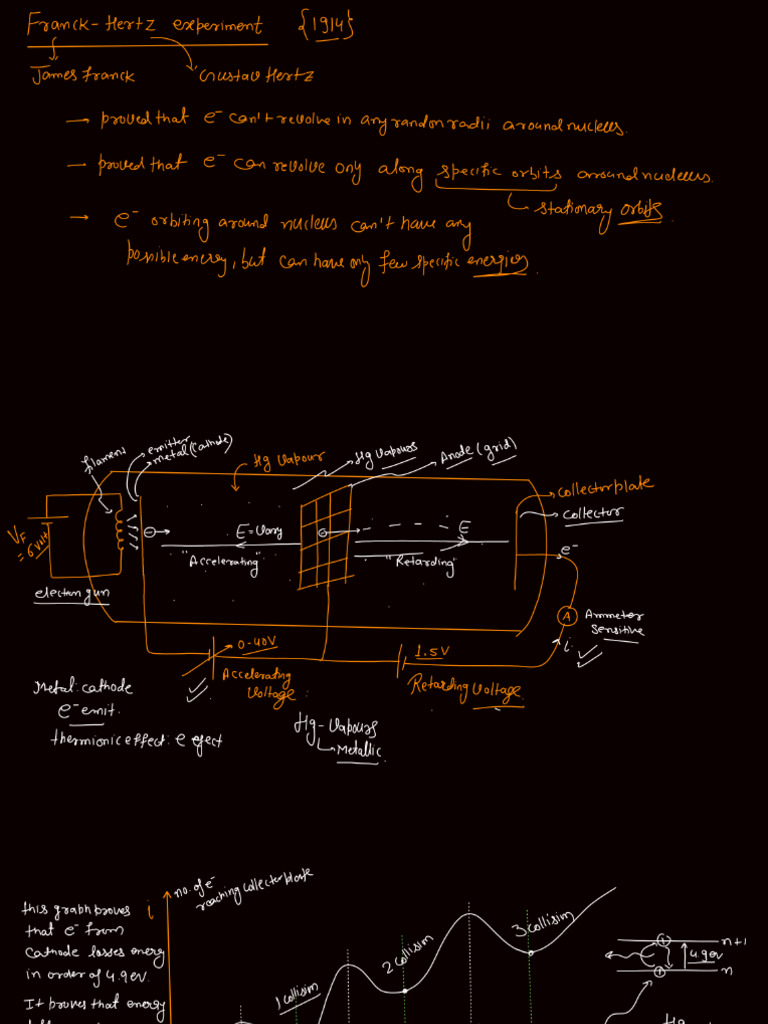 Franck-Hertz experiment {1914}
James Franck Gustav Hertz
→ proved that e⁻ can't revolve in any randon radii around nucleus.
→ proved that e⁻ can revolve only along specific orbits around nucleus.
stationary orbits.
→ e⁻ orbiting around nucleus can't have any
possible energy, but can have only few specific energies.
filament
emitter
metal (cathode)
Hg Vapour
Hg Vapours
Anode (grid)
collector plate
collector
VF
= 6 volt
E = Vary
"Accelerating"
E
"Retarding"
e⁻
electron gun
A
Ammeter
sensitive
i
0-40V
Accelerating
Voltage
1.5V
Retarding Voltage
Metal: cathode
e⁻ emit.
thermionic effect: e eject
Hg-Vapours
Metallic
no. of e⁻
reaching collector plate
i
this graph proves
that e⁻ from
cathode losses energy
in order of 4.9 ev.
It proves that energy
1 collisim
2 collisim
3 collisim
n+1
4.9ev
n
Hg